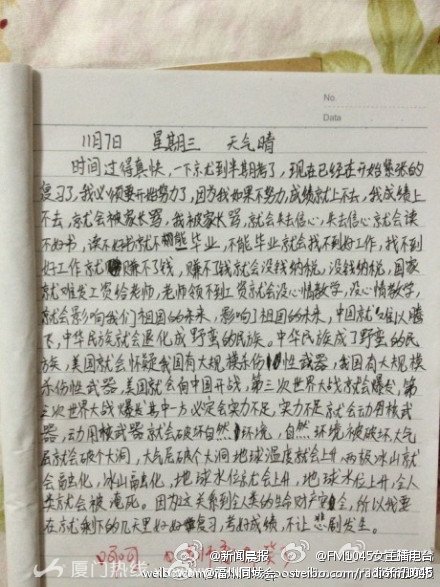 No.
Data
11月7日 星期三 天气晴
时间过得真快，一下就到半期考了，现在已经连开始紧张的
复习了，我必须要开始努力了，因为我如果不努力，成绩就上不去，我成绩上
不去，就会被家长骂，我被家长骂，就会失去信心，失去信心就会读
不好书，读不好书就不能毕业，不能毕业就会找不到好工作，找不到
好工作就赚不了钱，赚不了钱就会没钱纳税，没钱纳税，国家
就难发工资给老师，老师领不到工资就会没心情教学，没心情教学，
就会影响我们祖国的未来，影响了祖国的未来，中国就难以腾
飞，中华民族就会退化成野蛮的民族。中华民族成了野蛮的民
族，美国就会怀疑我国有大规模杀伤性武器，我国有大规模
杀伤性武器，美国就会向中国开战，第三次世界大战就会爆发，第
三次世界大战爆发其中一方必定会实力不足，实力不足就会动用核武
器，动用核武器就会破坏自然环境，自然环境被破坏，大气
层就会破个大洞，大气层破个大洞地球温度就会上升，两极冰山就
会融化，冰山融化，地球水位就会上升，地球水位上升，全人
类就会被淹死。因为这关系到全人类的生命财产安全，所以我要
在就剩下的几天里好好复习，考好成绩，不让悲剧发生。
厦门热线
@新闻晨报
@FM1045女主播电台
@福州同城会
weibo.com/radiofm1045